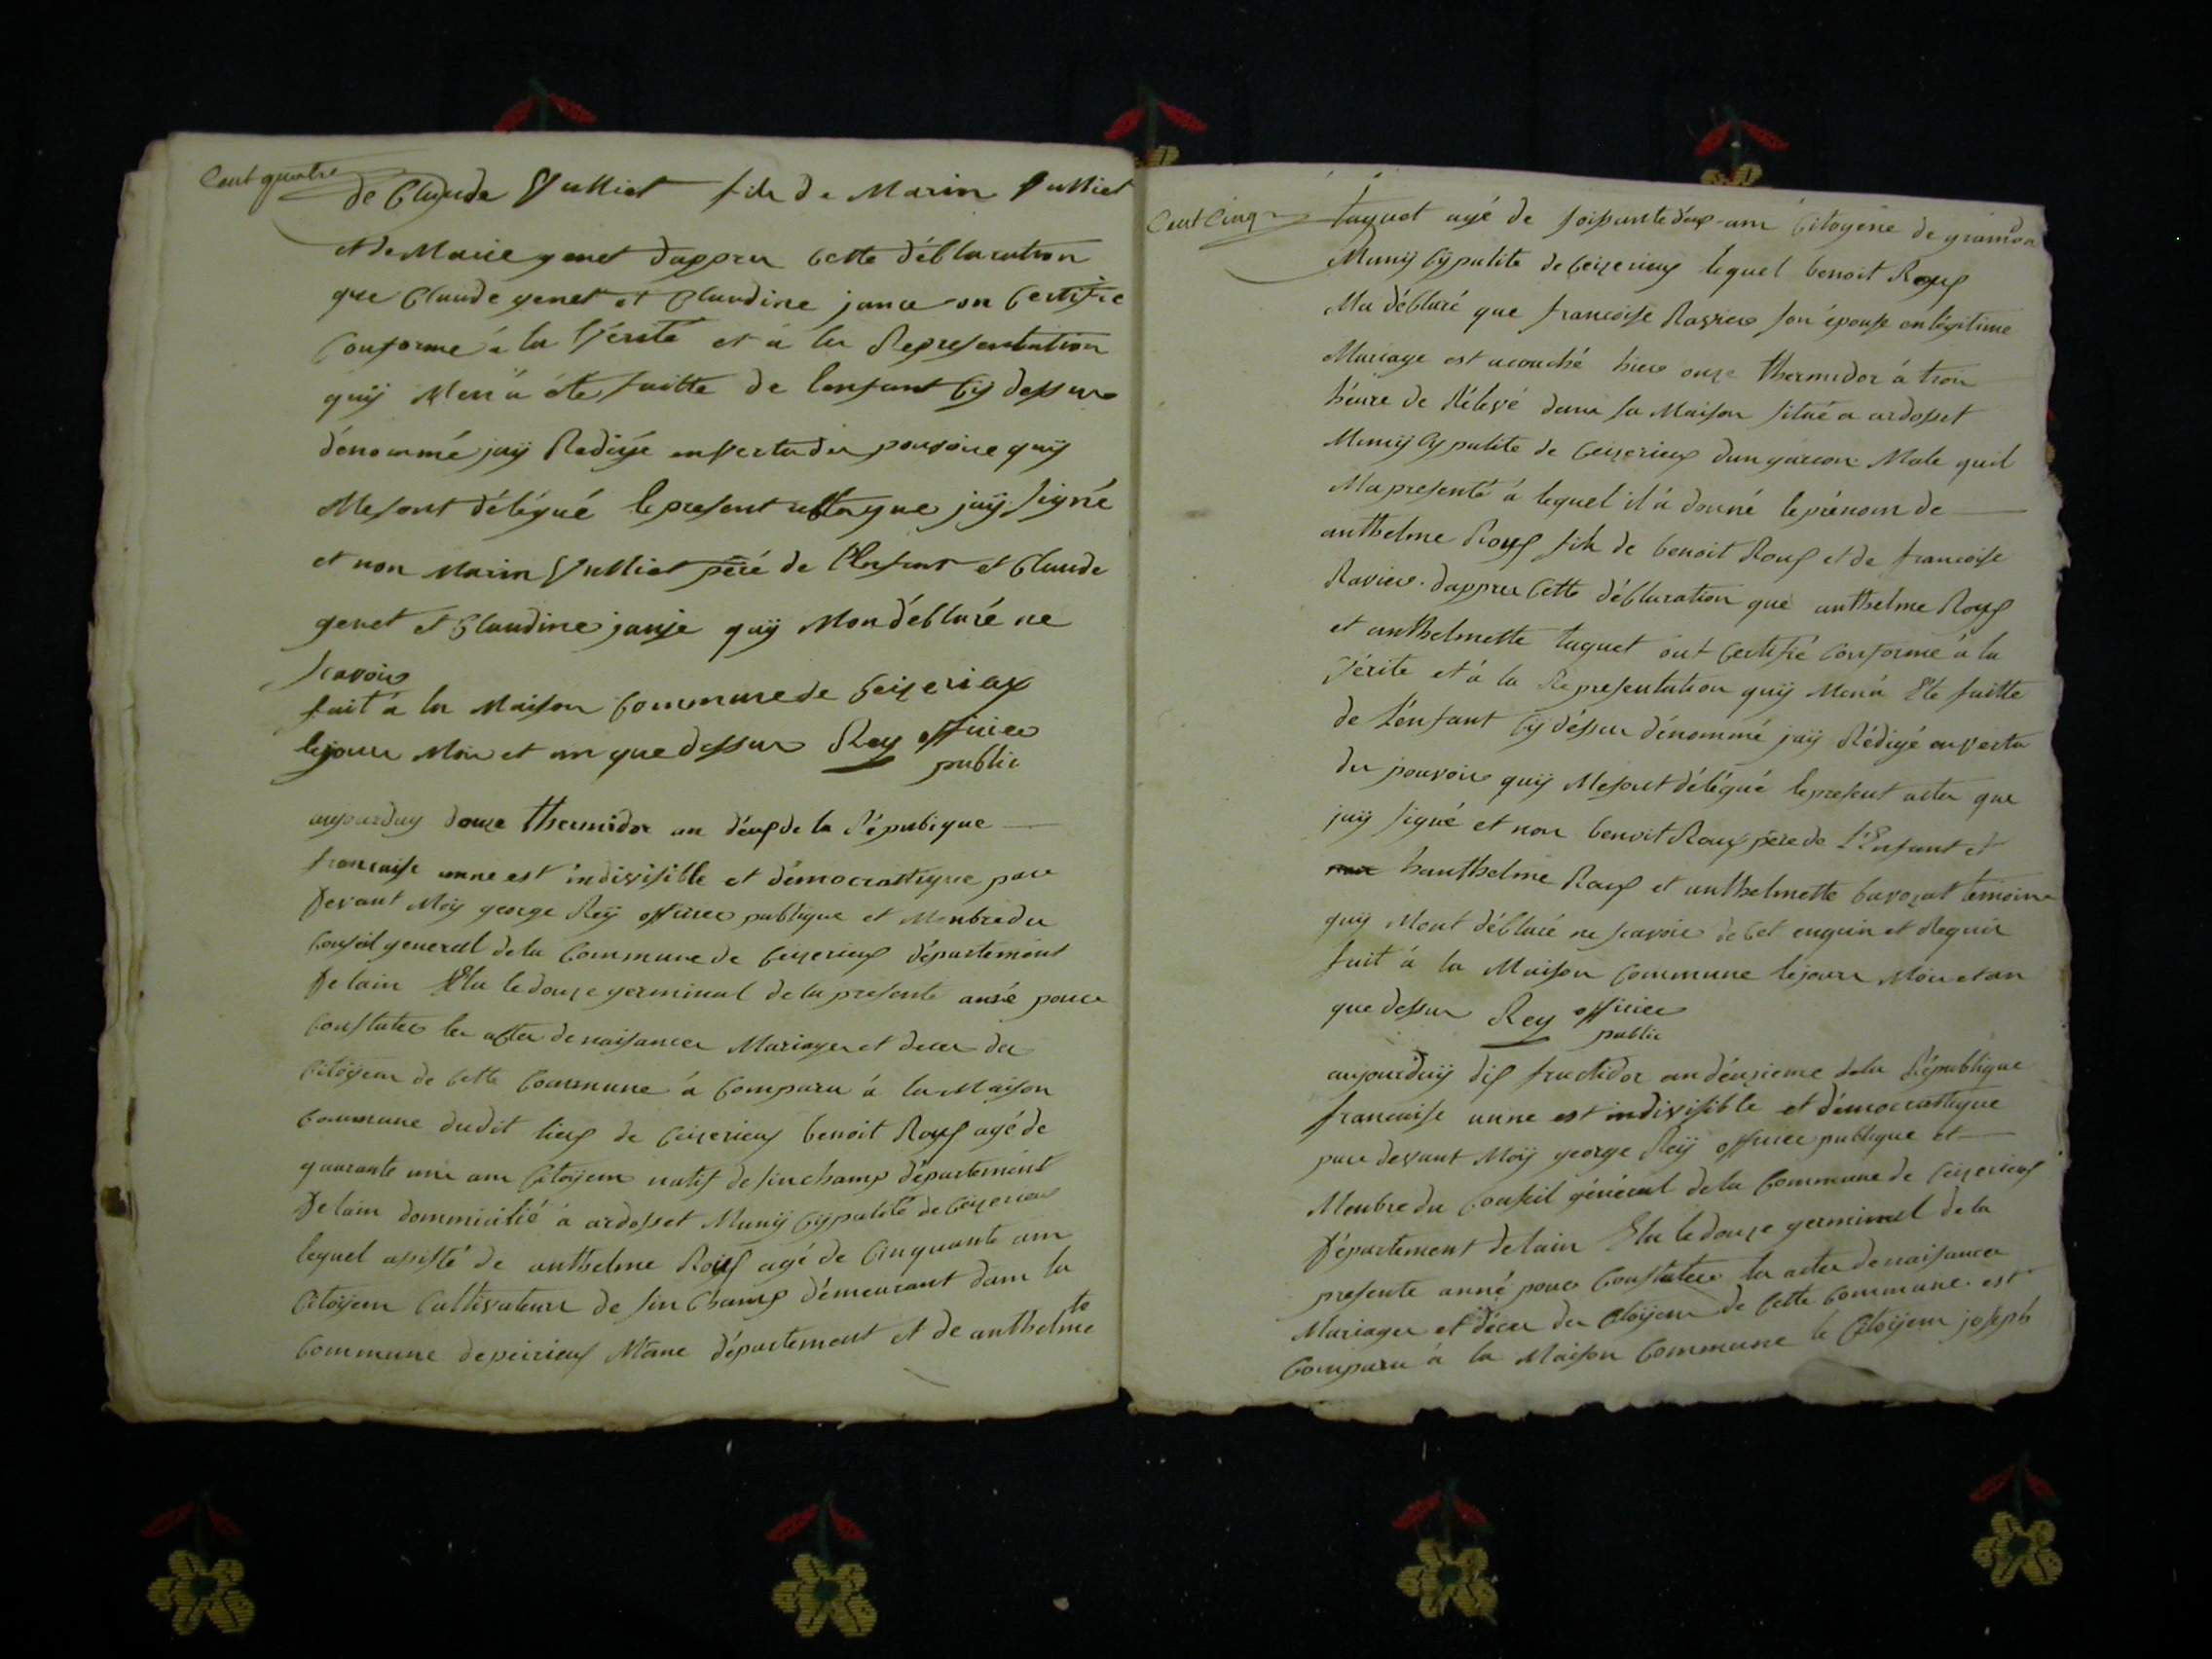 Cent quatre
de Claude Vulliet fils de Marin Vulliet
et de Marie genet dappres Cette déblaration
que Claude genet et Claudine janie on Certifié
Conforme à la Vérité et à la Représentation
quÿ Men à été faitte de lenfant Cÿ dessus
dénommé jaÿ Redigé en Vertu du pouvoire quÿ
Mesont délégué le present acte que jaÿ signé
et non Marin Vulliet péré de l'Enfant et Claude
genet et Claudine janje quÿ Mon déblaré ne
scavoir
fait à la Maison Commune de Ceizeriax
le jour Moi et an que dessus Rey officier
public
aujourduy douze thermidor an déux de la République
francaise unne est indivisible et démocrattique pare
devant Moÿ george Reÿ officier publique et Menbre du
Conseil general de la Commune de Ceizerieux département
De lain Elu le douze germinal de la presente anné pour
Constater les actes de naisances Mariages et deces des
Citoÿens de Cette Commune à Comparu à la Maison
Commune dudit lieux de Ceizerieux benoit Roux agé de
quarante un ans Citoÿens natif de sinchamp département
De lain dommicilié à ardosset Munÿ Cÿpalité de Ceizerieux
lequel assisté de anthelme Roux agé de Cinquante ans
Citoÿens Cultivateur de sin Champ démeurant dans la
Commune de peirieux Même département et de anthelmette
Cent Cinq
tuquet agé de soissante déux ans Citoyene de gramon
Munÿ Cÿpalite de Ceizerieux lequel benoit Roux
Ma déblaré que francoise Ravier son épouse en légitime
Mariage est acouché hier onze thermidor à trois
héure de Rélevé dans sa Maison situé a ardosset
Munÿ Cÿpalite de Ceizerieux dun garcon Male quil
Ma presenté à lequel il à donné le prénom de
anthelme Roux fils de benoit Roux et de francoise
Ravier. dappres Cette déblaration que anthelme Roux
et anthelmette tuquet ont Certifié Conforme à la
Vérite et à la Representation quÿ Men à Eté faitte
de L'énfant Cÿ déssus dénommé jaÿ Rédigé en Vertu
du pouvoir quÿ Mesont délégué le present actes que
jaÿ signé et non benoit Roux pére de L'Enfant et
hanthelme Roux et anthelmette bavozat temoins
quÿ Mont déblaré ne scavoir de Cet enquis et Requis
fait à la Maison Commune le jour Moi et an
que dessus Rey officier
public
aujourduÿ dix fructidor an déuzieme de la République
francaise unne est indivisible et démocrattique
pare devant Moÿ george Reÿ officier publique et
Menbre du Conseil général de la Commune de Ceizerieux
Département de lain Elu le douze germinal de la
presente anné pour Constater les actes de naisances
Mariages et déces des Citoÿens de Cette Commune est
Comparu à la Maison Commune le Citoÿens joseph